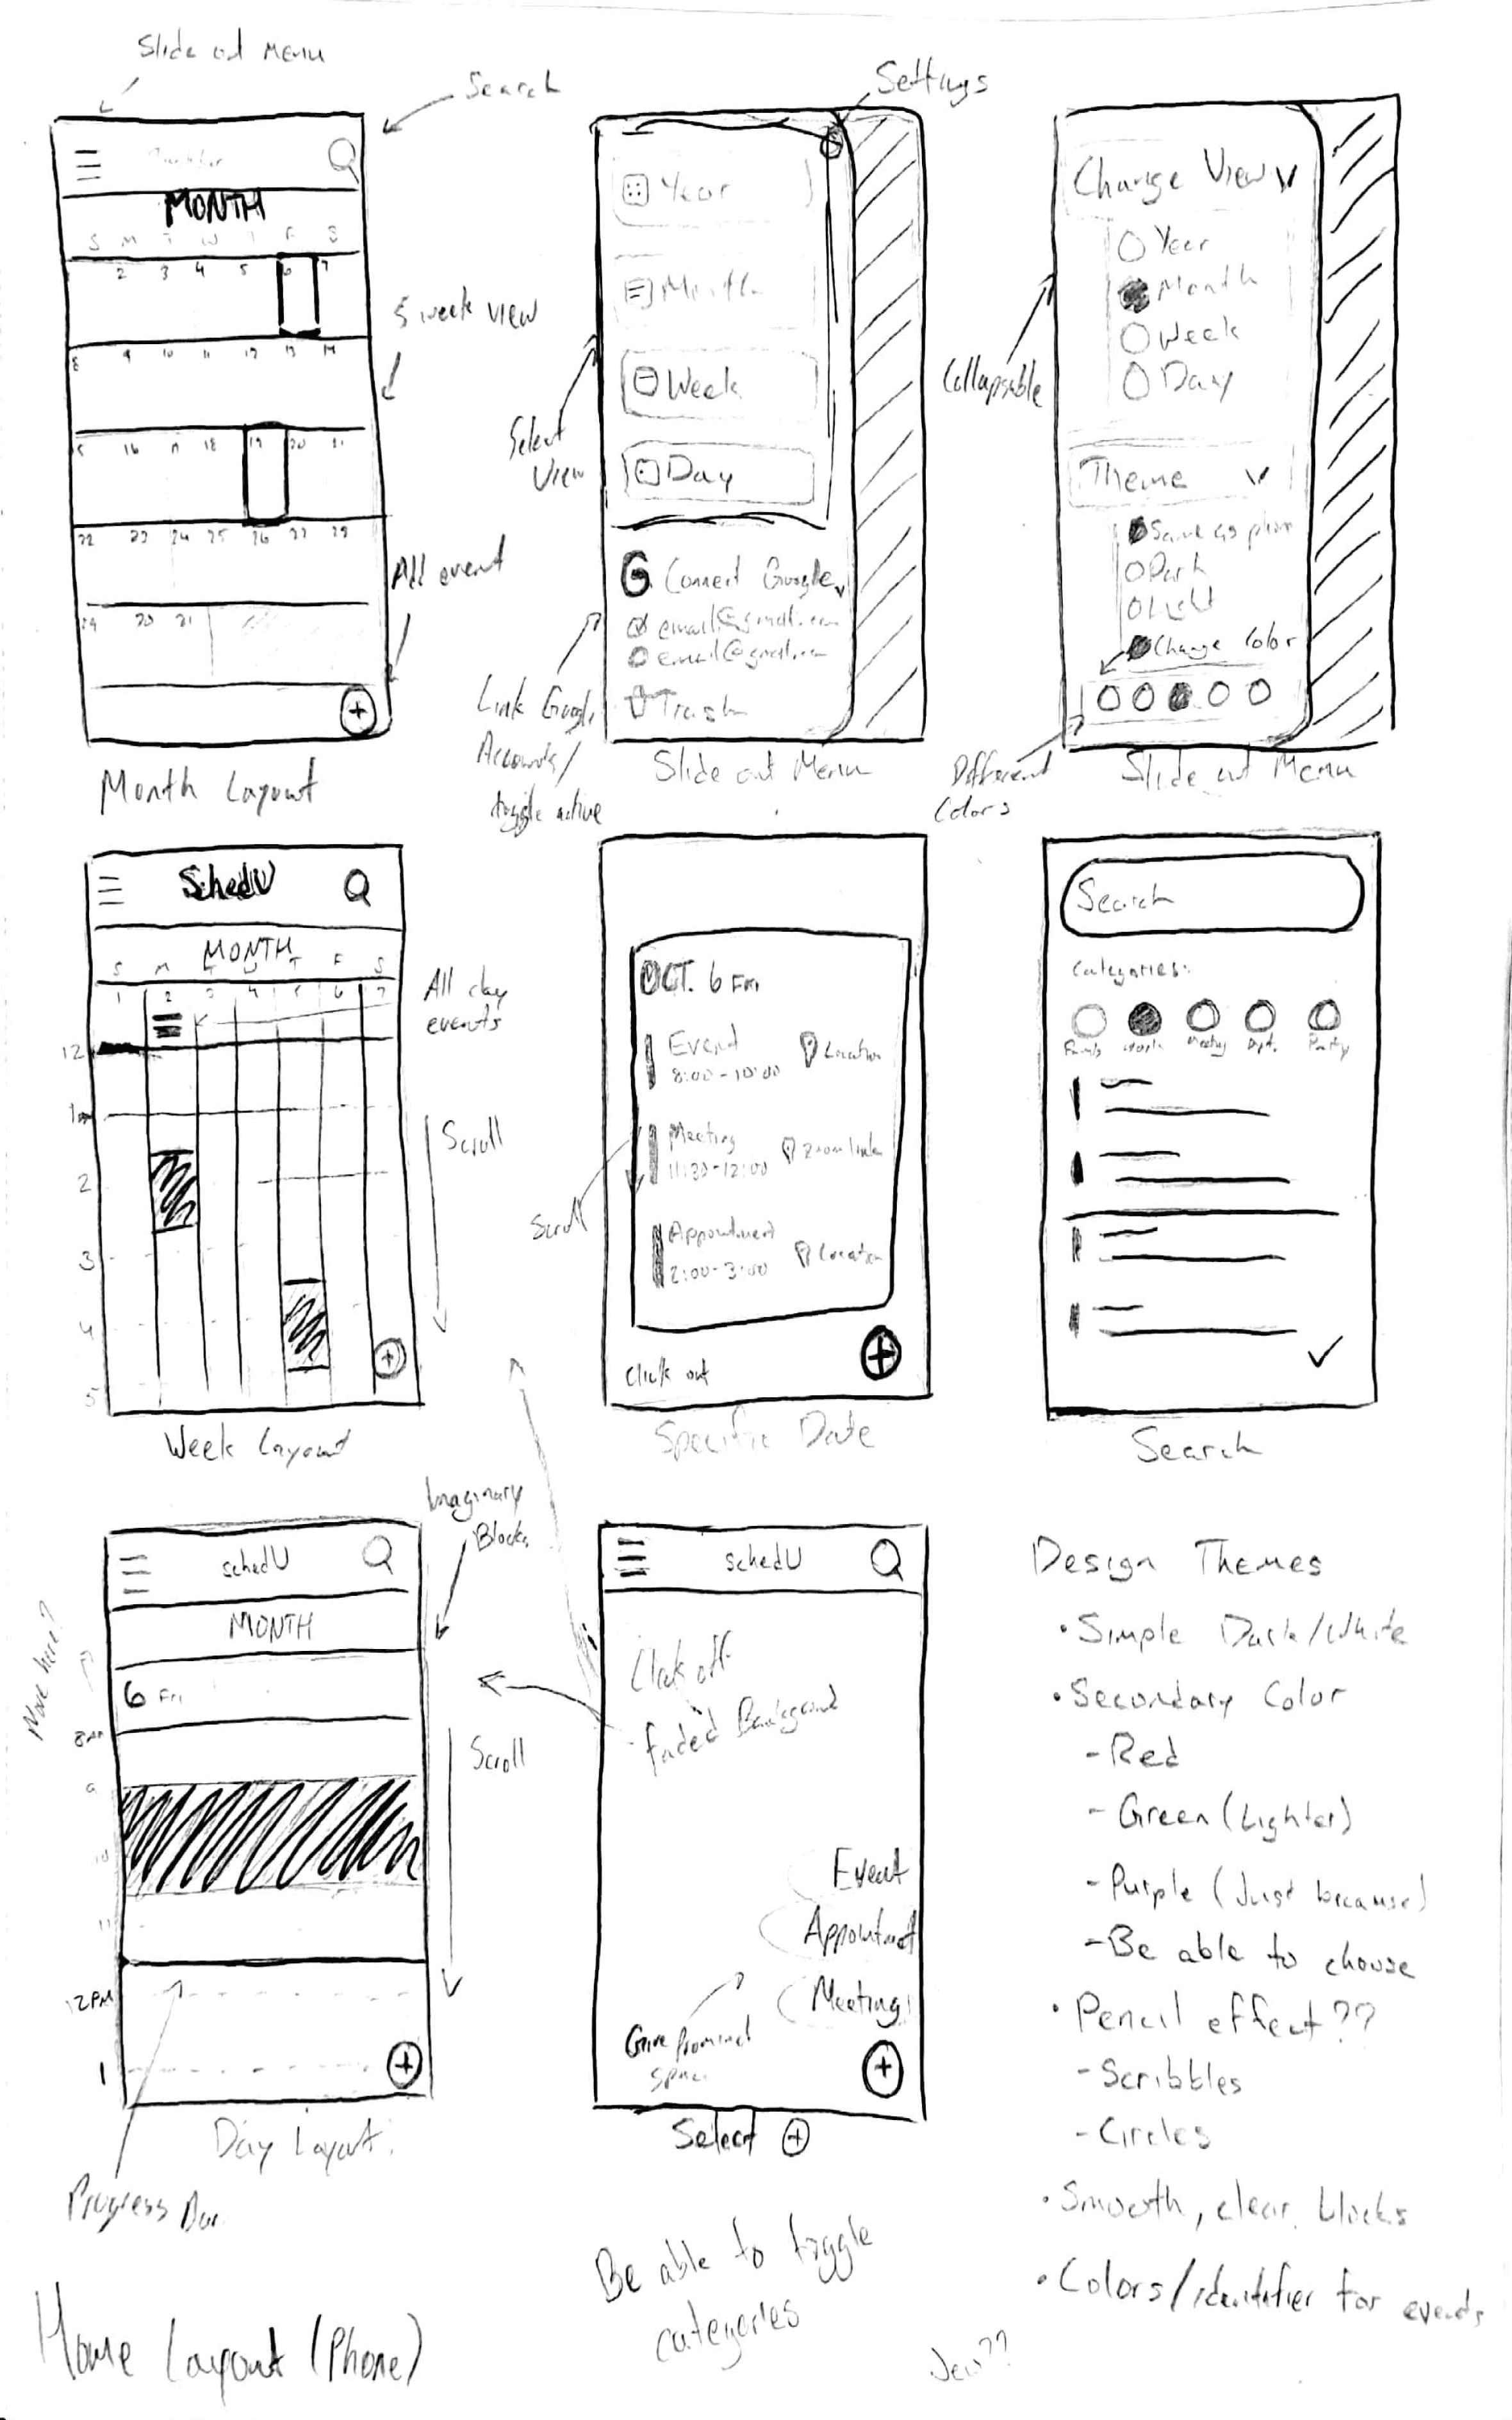 Slide out Menu
Search
MONTH
S M T W T F S
2 3 4 5 6 7
8 9 10 11 12 13 14
16 17 18 19 20 21
22 23 24 25 26 27 28
29 30 31
5 week view
Add event
Month Layout
Settings
Year
Month
Week
Day
Select
View
G Connect Google
email@gmail.com
email@gmail.com
Trash
Link Google
Accounts/
toggle active
Slide out Menu
Change View
Year
Month
Week
Day
Collapsable
Theme
Same as phone
Dark
Light
Change Color
Different
Colors
Slide out Menu
SchedU
MONTH
S M T W T F S
1 2 3 4 5 6 7
All day
events
12
1
2
3
4
5
Scroll
Week Layout
OCT. 6 Fri
Event
8:00-10:00
Location
Meeting
11:30-12:00
Zoom link
Appointment
2:00-3:00
Location
Scroll
Click out
Specific Date
Search
Categories:
Meeting
Search
Imaginary
Blocks
schedU
MONTH
6 Fri
Move here?
8AM
9
10
11
12PM
1
Scroll
Day Layout
Progress Bar
schedU
Click off
Faded Background
Event
Appointment
Meeting
Give prominent
space
Select +
Be able to toggle
categories
Design Themes
• Simple Dark/White
• Secondary Color
- Red
- Green (Lighter)
- Purple (Just because)
- Be able to choose
• Pencil effect??
- Scribbles
- Circles
• Smooth, clear blocks
• Colors/identifier for events
Home Layout (Phone)